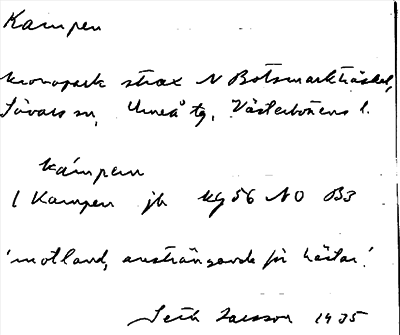 Kampen
kronopark strax N Botsmarkträsket,
Sävars sn, Umeå tg, Västerbottens l.
kámpen
1 Kampen jb kg 56 NO B3
'motland, ansträngande för hästar'
Seth Larsson 1935